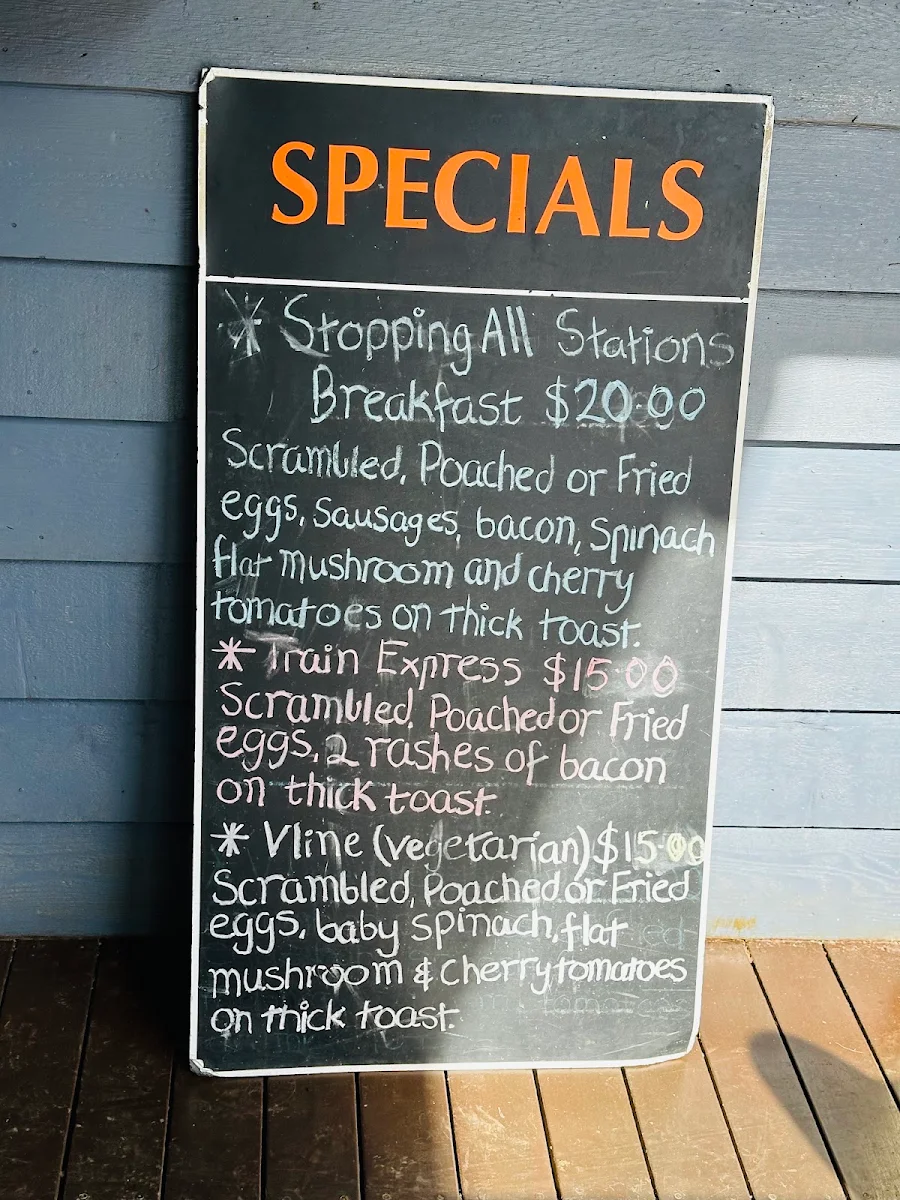 SPECIALS
* Stopping All Stations
Breakfast $20.00
Scrambled, Poached or Fried
eggs, Sausages, bacon, Spinach
flat mushroom and cherry
tomatoes on thick toast.
* Train Express $15.00
Scrambled, Poached or Fried
eggs, 2 rashes of bacon
on thick toast.
* Vline (vegetarian) $15.00
Scrambled, Poached or Fried
eggs, baby Spinach, flat
mushroom & Cherry tomatoes
on thick toast.